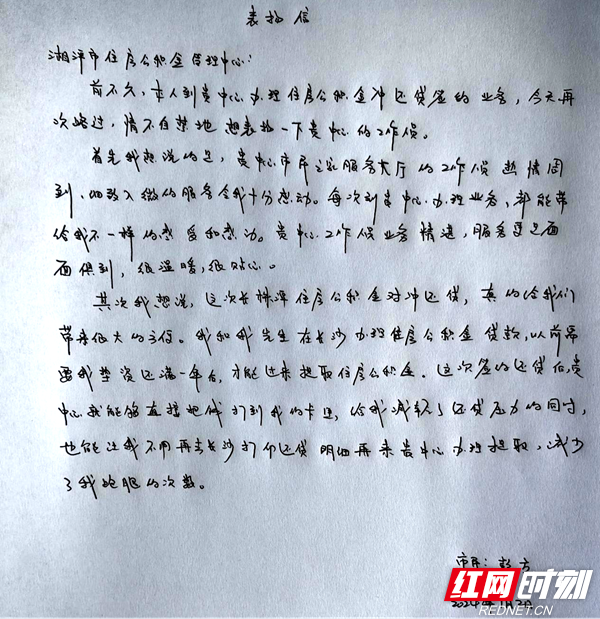 表扬信
湘潭市住房公积金管理中心:
前不久,本人到贵中心办理住房公积金冲还贷签约业务,今天再
次路过,情不自禁地想表扬一下贵中心的工作人员。
首先我想说的是,贵中心市民之家服务大厅的工作人员热情周
到、细致入微的服务令我十分感动。每次到贵中心办理业务,都能带
给我不一样的感受和感动。贵中心工作人员业务精通,服务更是面
面俱到,很温暖,很贴心。
其次我想说,这次长株潭住房公积金对冲还贷,真的给我们
带来很大的方便。我和我先生在长沙办理住房公积金贷款,以前需
要我垫资还满一年后,才能过来提取住房公积金。这次签约还贷后,贵
中心就能够直接把钱打到我的卡里,给我减轻了还贷压力的同时,
也能让我不用再去长沙打印还贷明细再来贵中心办理提取,减少
了我跑腿的次数。
市民:彭方
红网时刻
REDNET.CN